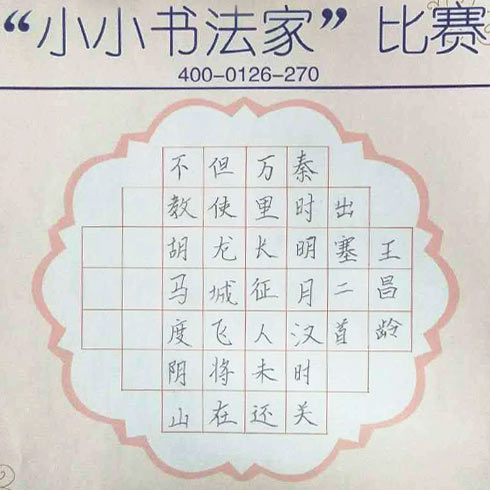 “小小书法家”比赛
400-0126-270
王昌龄
出塞二首
秦时明月汉时关
万里长征人未还
但使龙城飞将在
不教胡马度阴山